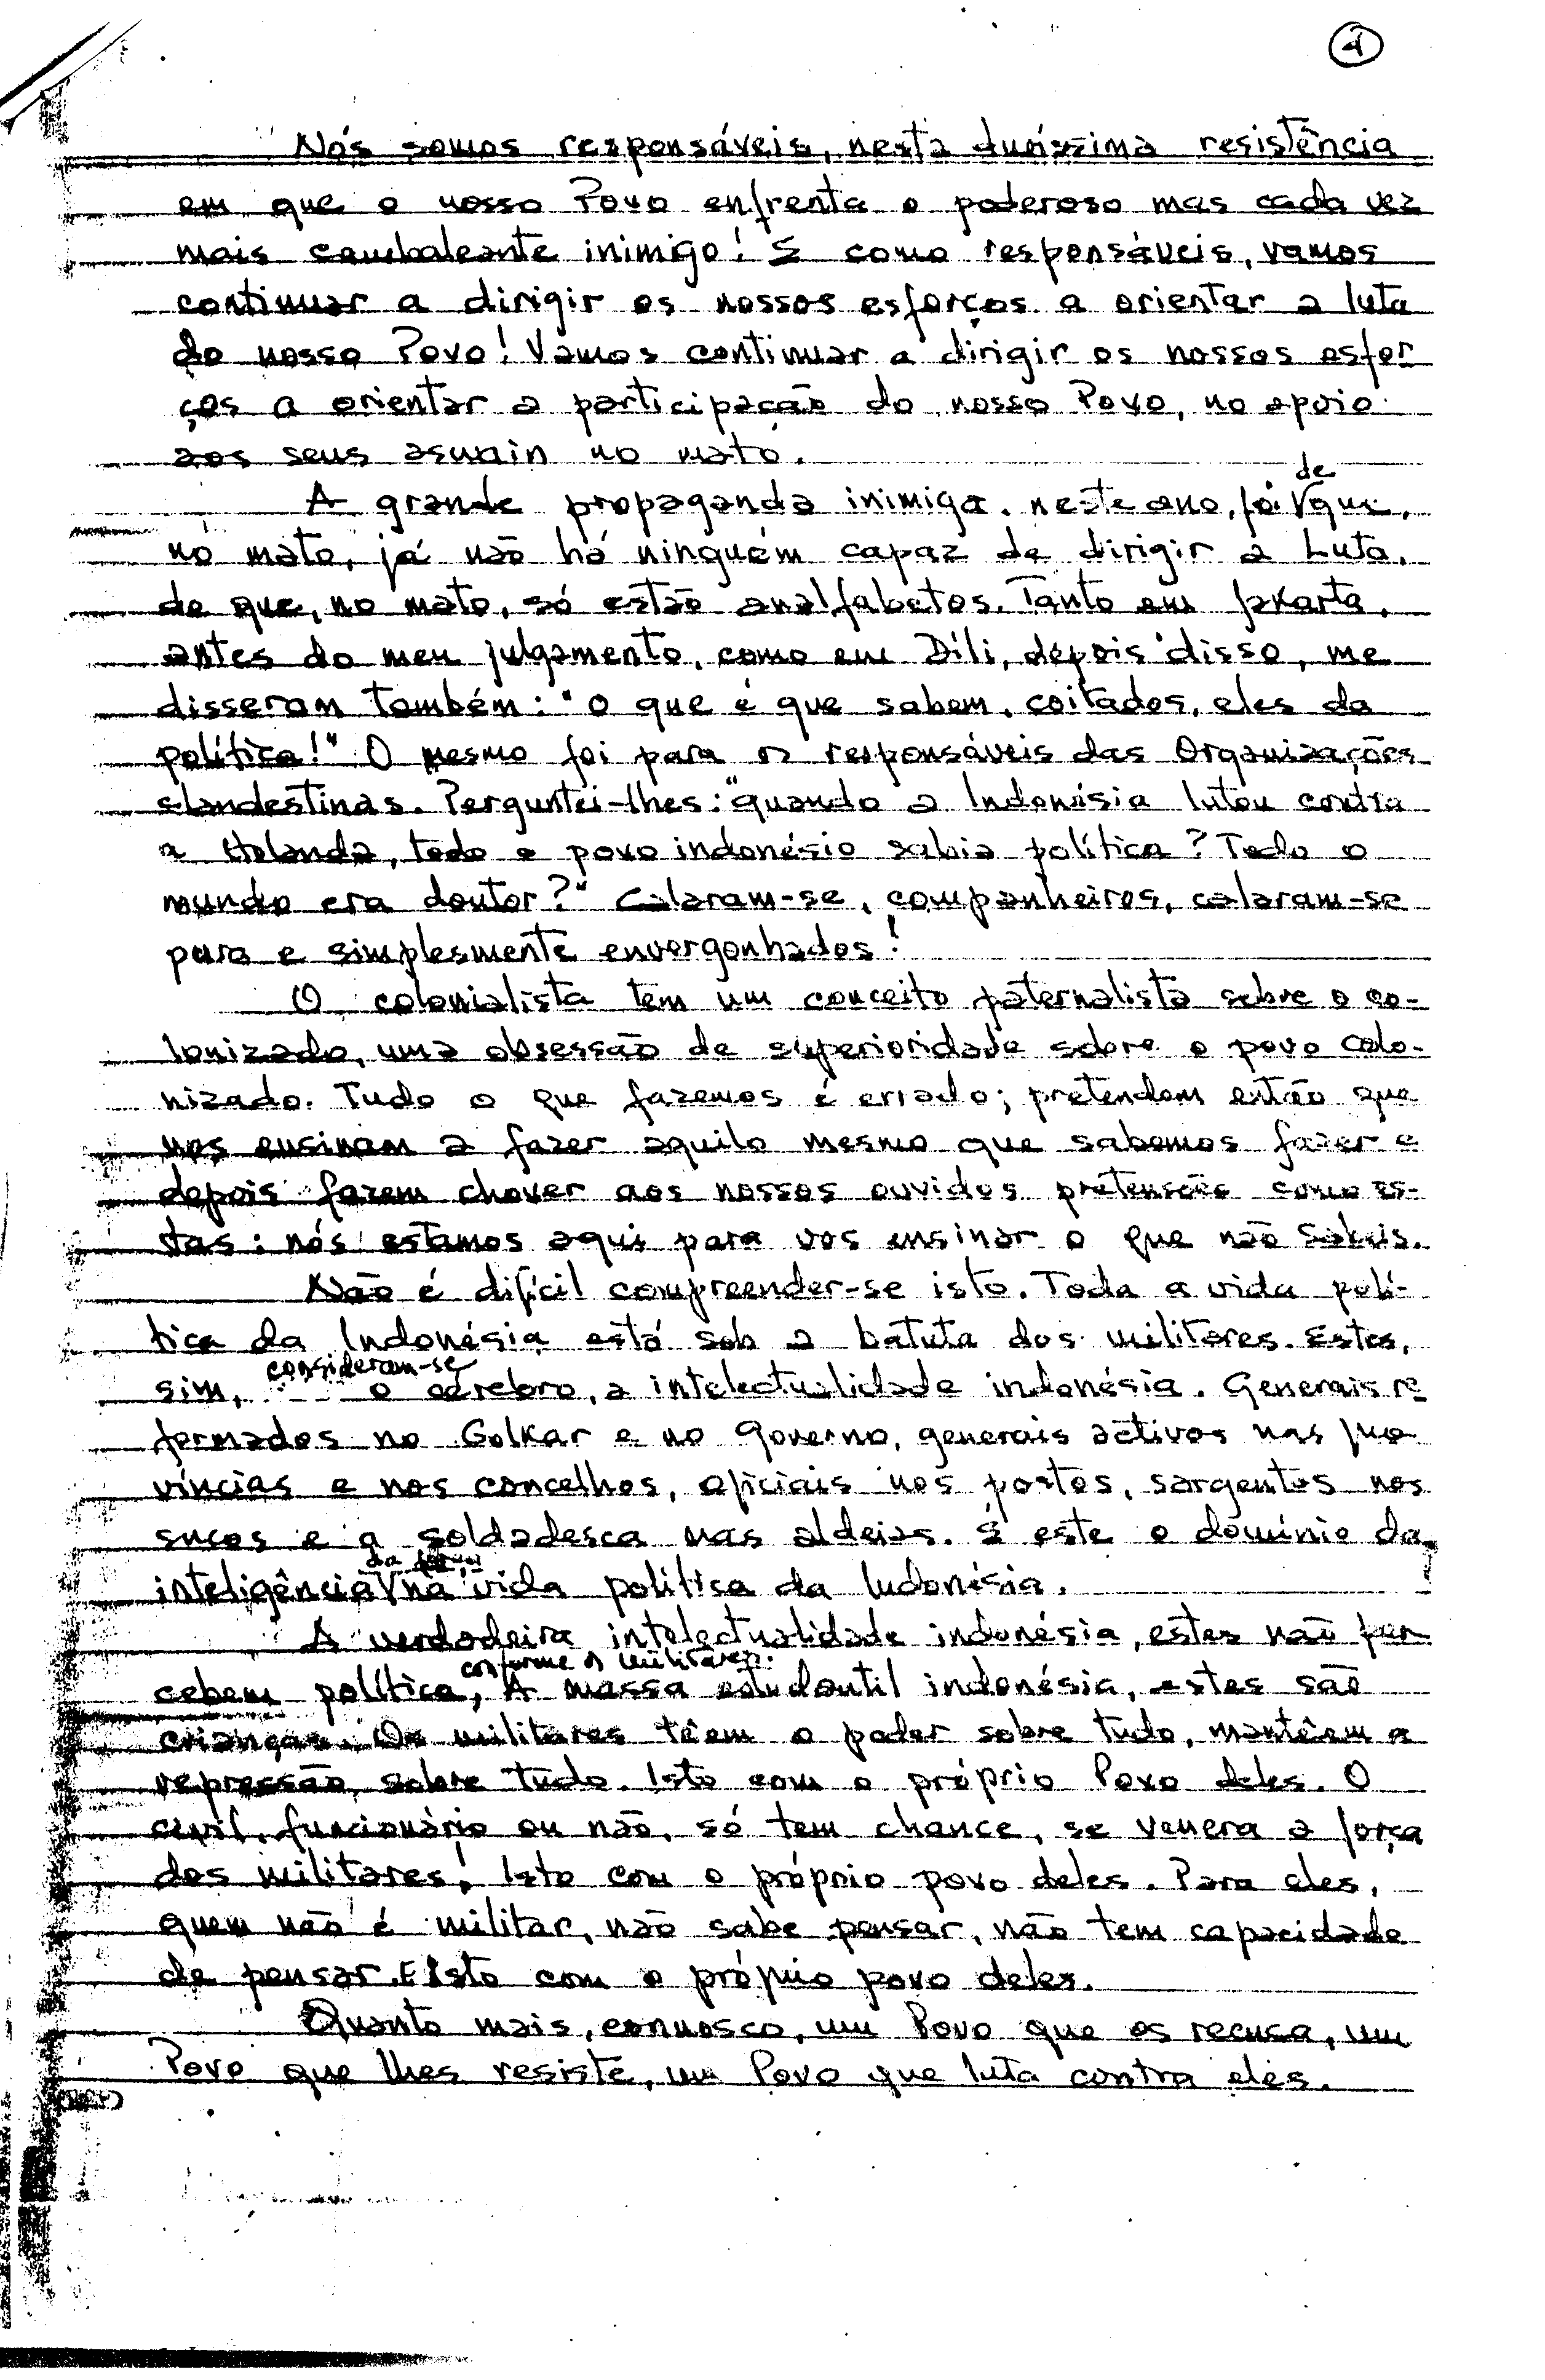 4
Nós somos responsáveis, nesta duríssima resistência
em que o nosso Povo enfrenta o poderoso mas cada vez
mais cambaleante inimigo! E como responsáveis, vamos
continuar a dirigir os nossos esforços a orientar a luta
do nosso Povo! Vamos continuar a dirigir os nossos esfor
ços a orientar a participação do nosso Povo, no apoio
aos seus asuain no mato.
A grande propaganda inimiga, neste ano, foi de que,
no mato, já não há ninguém capaz de dirigir a Luta,
de que, no mato, só estão analfabetos. Tanto em Jakarta,
antes do meu julgamento, como em Díli, depois disso, me
disseram também: "O que é que sabem, coitados, eles da
política!" O mesmo foi para os responsáveis das Organizações
clandestinas. Perguntei-lhes: "quando a Indonésia lutou contra
a Holanda, todo o povo indonésio sabia política? Todo o
mundo era doutor?" Calaram-se, companheiros, calaram-se
pura e simplesmente envergonhados!
O colonialista tem um conceito paternalista sobre o co-
lonizado, uma obsessão de superioridade sobre o povo colo-
nizado. Tudo o que fazemos é errado; pretendem então que
nos ensinam a fazer aquilo mesmo que sabemos fazer e
depois fazem chover aos nossos ouvidos pretensões como es-
tas: nós estamos aqui para vos ensinar o que não sabeis.
Não é difícil compreender-se isto. Toda a vida polí-
tica da Indonésia está sob a batuta dos militares. Estes,
sim, consideram-se o cérebro, a intelectualidade indonésia. Generais re
formados no Golkar e no Governo, generais activos nas pro
víncias e nos concelhos, oficiais nos postos, sargentos nos
sucos e a soldadesca nas aldeias. É este o domínio da
inteligência da na vida política da Indonésia.
A verdadeira intelectualidade indonésia, estes não per
cebem política, conforme os militares. A massa estudantil indonésia, estes são
crianças. Os militares têem o poder sobre tudo, mantêem a
repressão sobre tudo. Isto com o próprio Povo deles. O
civil, funcionário ou não, só tem chance, se venera a força
dos militares! Isto com o próprio povo deles. Para eles,
quem não é militar, não sabe pensar, não tem capacidade
de pensar. E Isto com o próprio povo deles.
Quanto mais, connosco, um Povo que os recusa, um
Povo que lhes resiste, um Povo que luta contra eles.